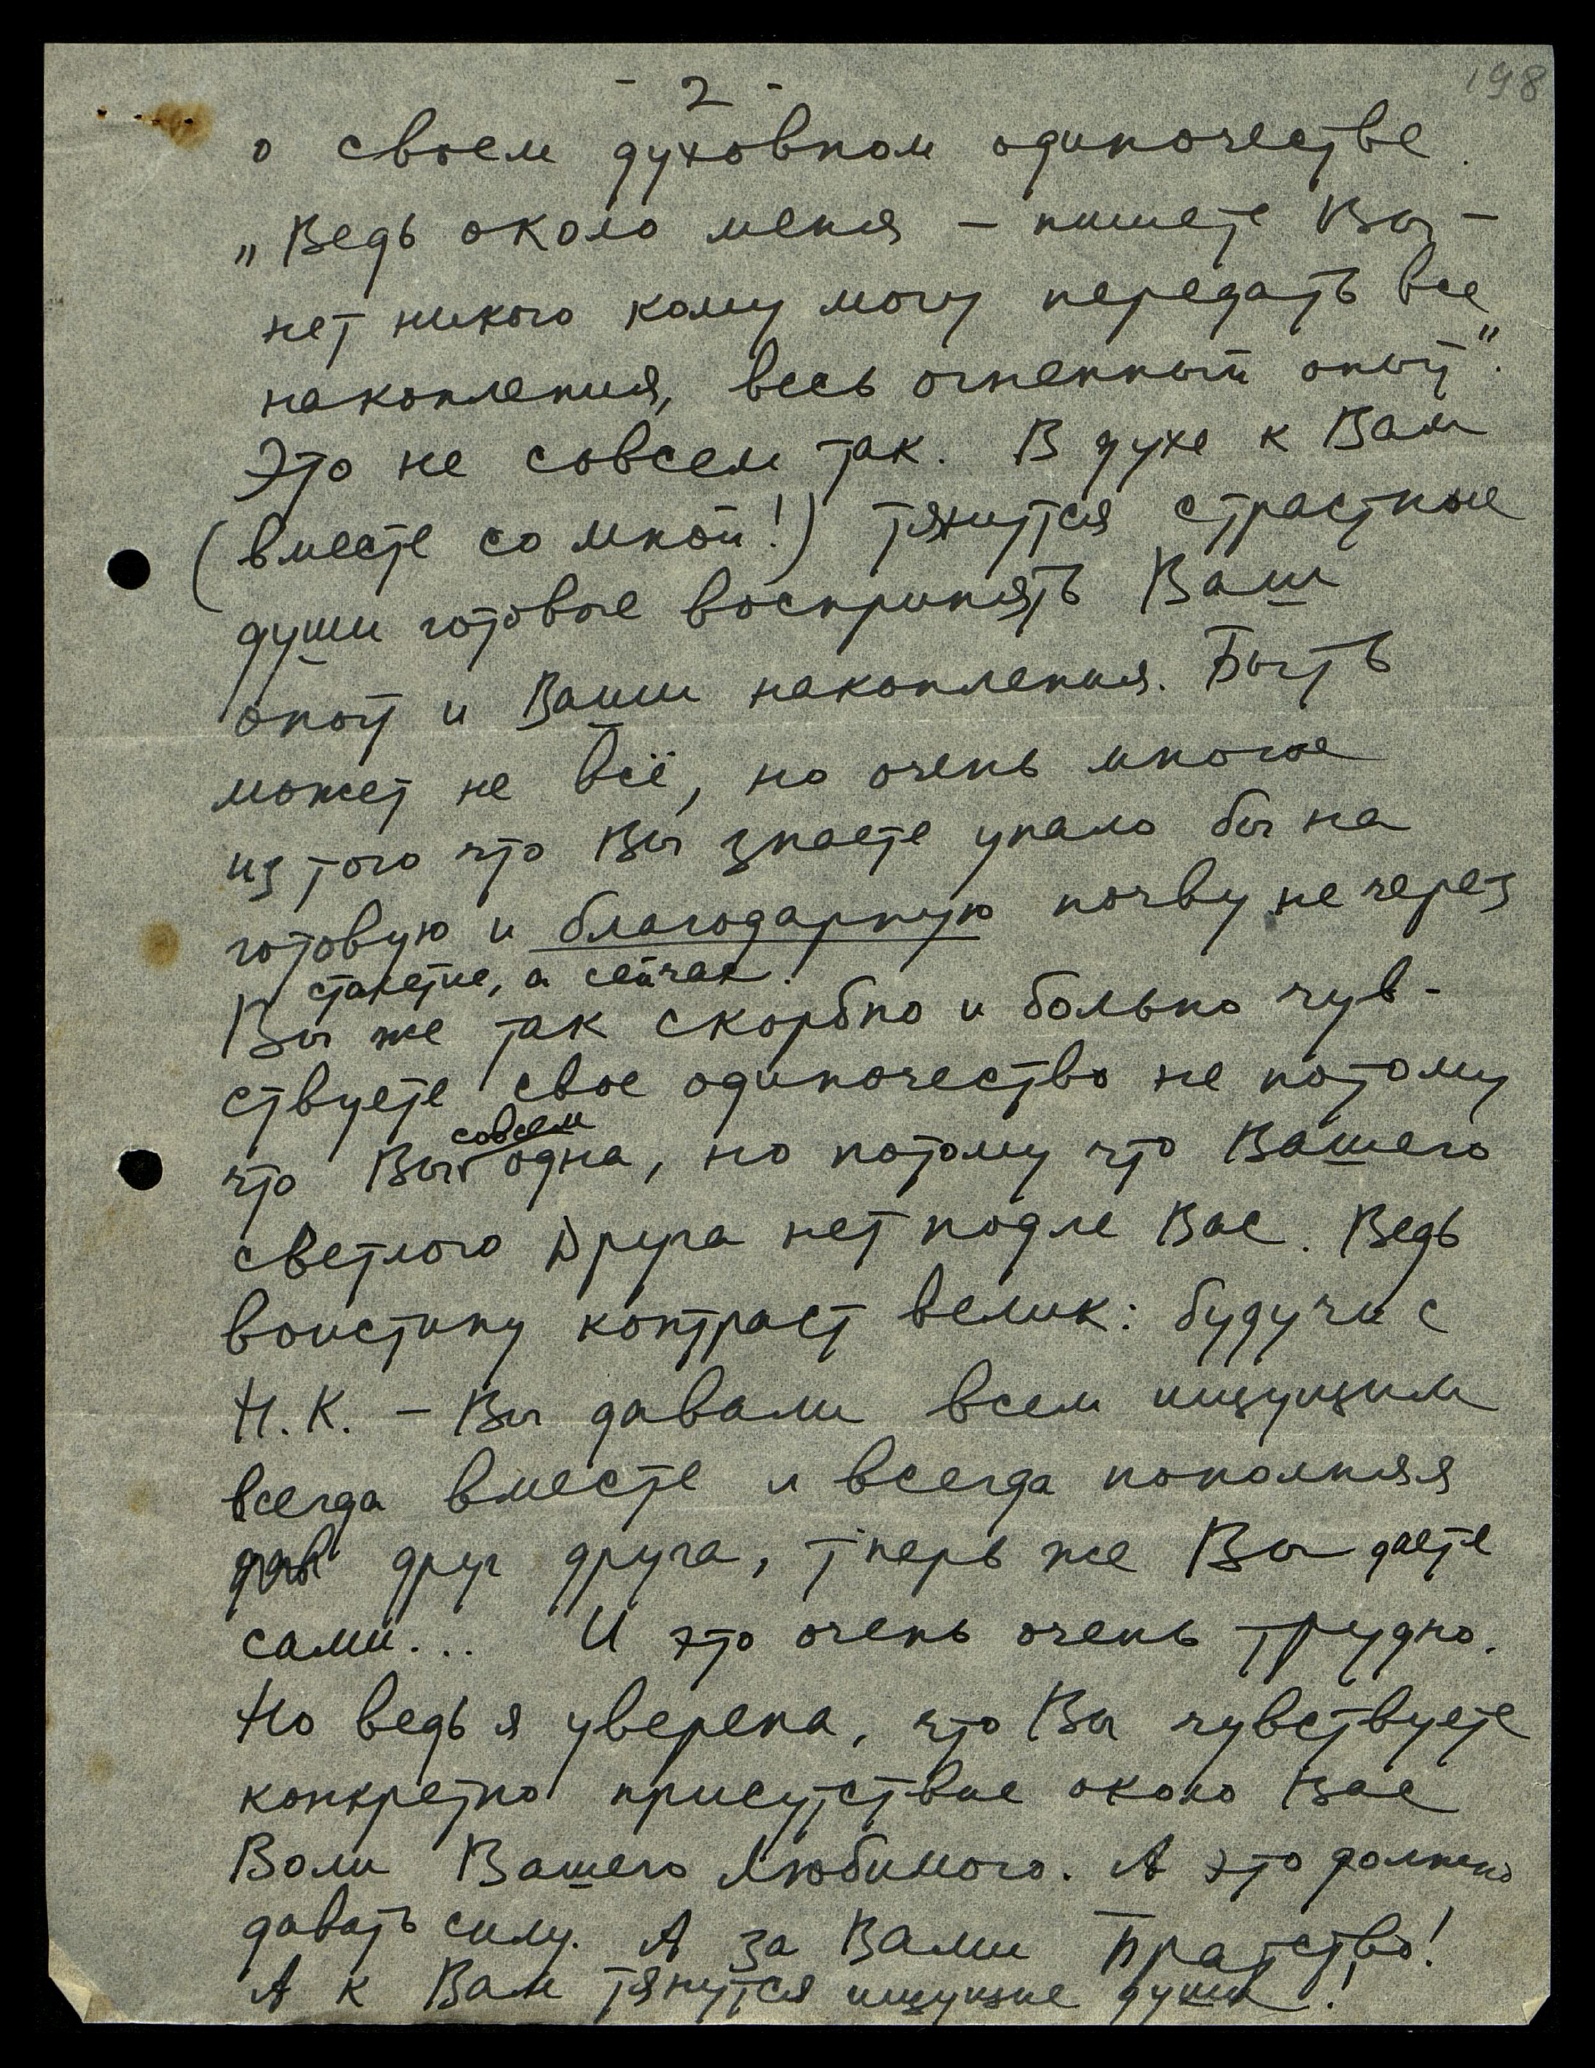 - 2 -
198
о своем духовном одиночестве.
„Ведь около меня – пишете Вы –
нет никого кому могу передать все
накопления, весь огненный опыт".
Это не совсем так. В духе к Вам
(вместе со мной!) тянутся страстные
души готовые воспринять Ваш
опыт и Ваши накопления. Быть
может не всё, но очень многое
из того что Вы знаете упало бы на
готовую и благодарную почву не через
столетие, а сейчас.
Вы же так скорбно и больно чув-
ствуете свое одиночество не потому
совсем
что Вы одна, но потому что Вашего
светлого Друга нет подле Вас. Ведь
воистину контраст велик: будучи с
Н.К. – Вы давали всем ищущим
всегда вместе и всегда пополняя
друг друга, тперь же Вы даете
сами... И это очень очень трудно.
Но ведь я уверена, что Вы чувствуете
конкретно присутствие около Вас
Воли Вашего Любимого. А это должно
давать силу. А за Вами Братство!
А к Вам тянутся ищущие души!